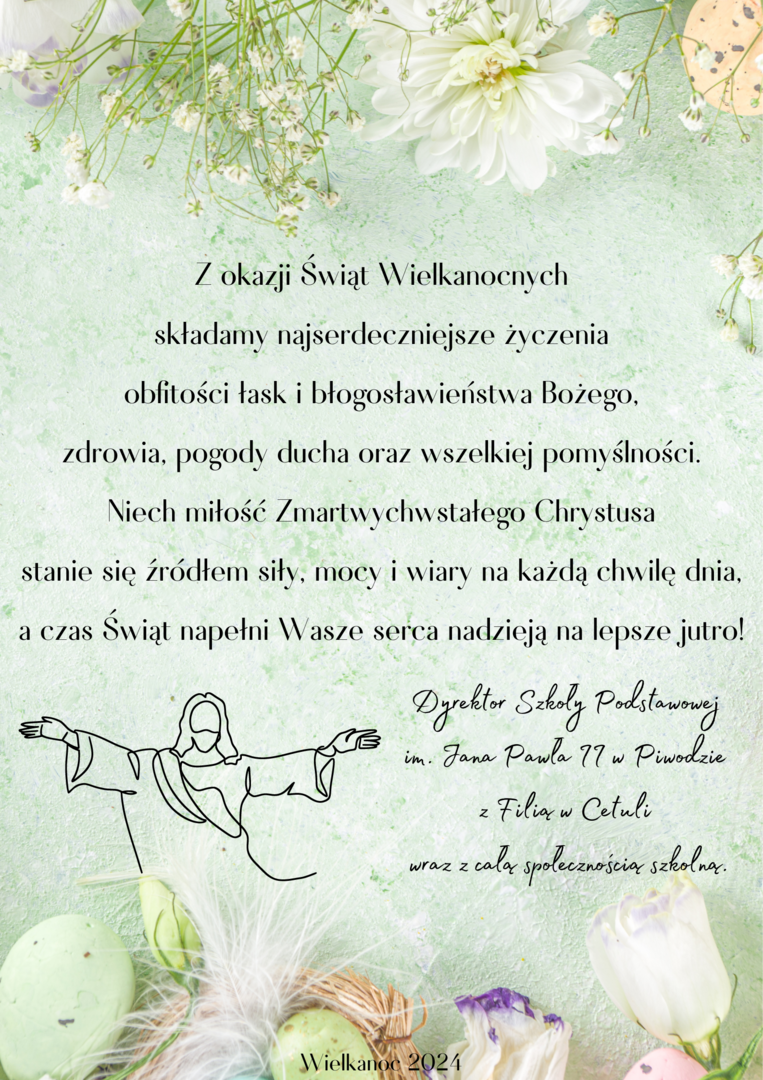 Z okazji Świąt Wielkanocnych
składamy najserdeczniejsze życzenia
obfitości łask i błogosławieństwa Bożego,
zdrowia, pogody ducha oraz wszelkiej pomyślności.
Niech miłość Zmartwychwstałego Chrystusa
stanie się źródłem siły, mocy i wiary na każdą chwilę dnia,
a czas Świąt napełni Wasze serca nadzieją na lepsze jutro!
Dyrektor Szkoły Podstawowej
im. Jana Pawła II w Piwodzie
z Filią w Cetuli
wraz z całą społecznością szkolną.
Wielkanoc 2024